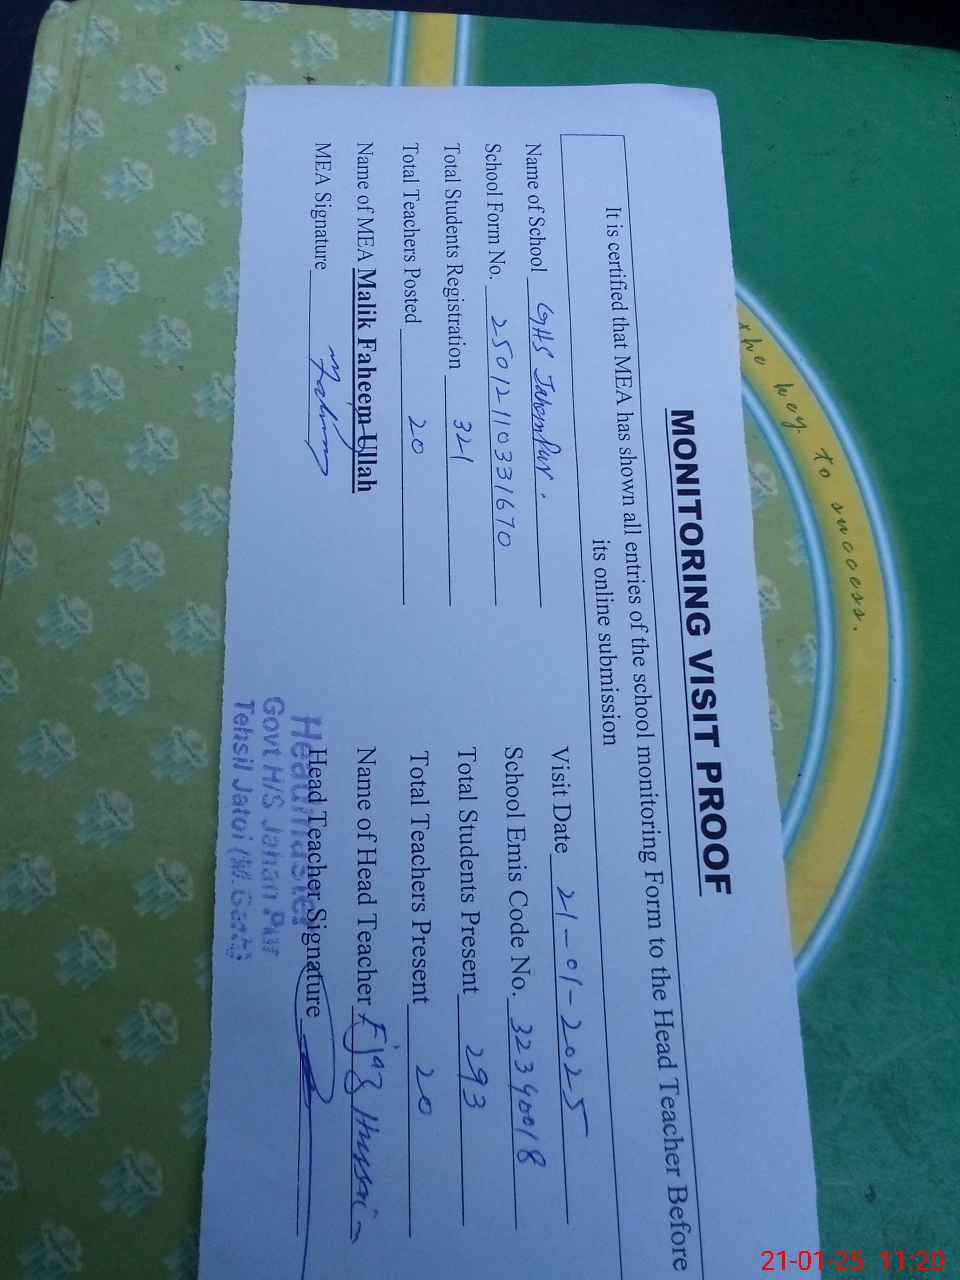 MONITORING VISIT PROOF
It is certified that MEA has shown all entries of the school monitoring Form to the Head Teacher Before
its online submission
Name of School GHS Jahanpur.
Visit Date 21-01-2025
School Form No. 25012110331670
School Emis Code No. 32340018
Total Students Registration 321
Total Students Present 293
Total Teachers Posted 20
Total Teachers Present 20
Name of MEA Malik Faheem Ullah
Name of Head Teacher Ejaz Hussain
MEA Signature
Head Teacher Signature
Headmaster
Govt H/S Jahan Pur
Tehsil Jatoi
the key to success.
21-01-25 11:20